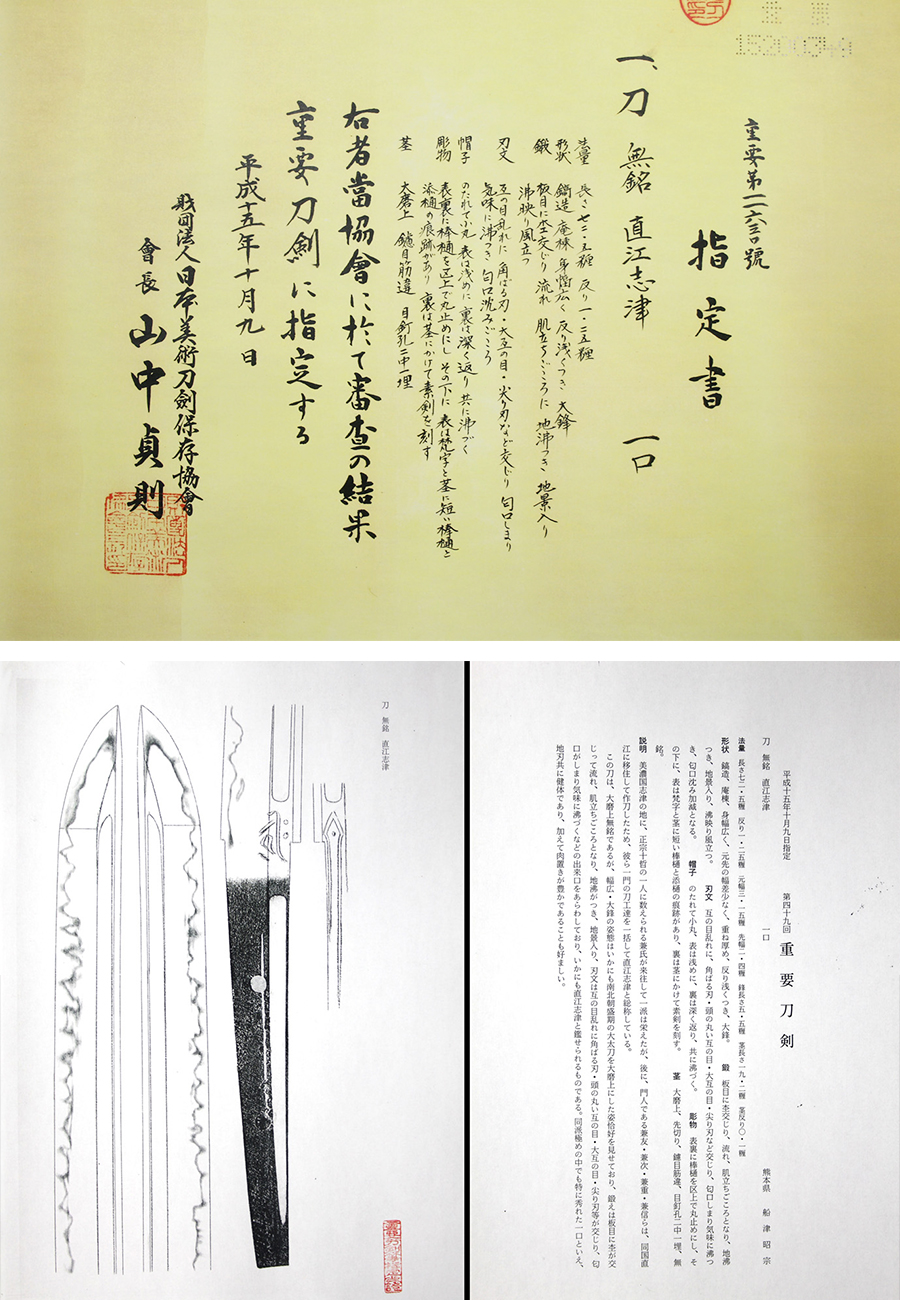 指定書
一、刀 無銘 直江志津 一口
法量 長さ七二・五糎 反り一・二五糎
形状 鎬造 庵棟 身幅広く 反り浅くつき 大鋒
鍛 板目に杢交じり 流れ 肌立ちごころに 地沸つき 地景入り
沸映り風立つ
刃文 互の目乱れに 角ばる刃・大互の目・尖り刃など交じり 匂口しまり
気味に沸つき 匂口沈みごころ
帽子 のたれて小丸 表は浅めに 裏は深く返り 共に沸づく
彫物 表裏に棒樋を区上で丸止めにし その下に 表は梵字と茎に短い棒樋と
添樋の痕跡があり 裏は茎にかけて素剣を刻す
茎 大磨上 鑢目筋違 目釘孔二中一埋
右者當協會に於て審査の結果
重要刀剣に指定する
平成十五年十月九日
財団法人日本美術刀劍保存協會
會長 山中貞則
刀 無銘 直江志津
平成十五年十月九日指定 第四十九回 重要刀剣
刀 無銘 直江志津 一口 熊本県 船津昭宗
法量 長さ七二・五糎 反り一・二五糎 元幅三・一五糎 先幅二・四糎 鋒長さ五・五糎 茎長さ一九・二糎 茎反り〇・一糎
形状 鎬造、庵棟、身幅広く、元先の幅差少なく、重ね厚め、反り浅くつき、大鋒。 鍛 板目に杢交じり、流れ、肌立ちごころとなり、地沸
つき、地景入り、沸映り風立つ。 刃文 互の目乱れに、角ばる刃・頭の丸い互の目・大互の目・尖り刃など交じり、匂口しまり気味に沸つ
き、匂口沈み加減となる。 帽子 のたれて小丸、表は浅めに、裏は深く返り、共に沸づく。 彫物 表裏に棒樋を区上で丸止めにし、そ
の下に、表は梵字と茎に短い棒樋と添樋の痕跡があり、裏は茎にかけて素剣を刻す。 茎 大磨上、先切り、鑢目筋違、目釘孔二中一埋、無
銘。
説明 美濃国志津の地に、正宗十哲の一人に数えられる兼氏が来住して一派は栄えたが、後に、門人である兼友・兼次・兼重・兼信らは、同国直
江に移住して作刀したため、彼ら一門の刀工達を一括して直江志津と総称している。
この刀は、大磨上無銘であるが、幅広・大鋒の姿態はいかにも南北朝盛期の大太刀を大磨上にした姿恰好を見せており、鍛えは板目に杢が交
じって流れ、肌立ちごころとなり、地沸がつき、地景入り、刃文は互の目乱れに角ばる刃・頭の丸い互の目・大互の目・尖り刃等が交じり、匂
口がしまり気味に沸づくなどの出来口をあらわしており、いかにも直江志津と鑑せられるものである。同派極めの中でも特に秀れた一口といえ、
地刃共に健体であり、加えて肉置きが豊かであることも好ましい。